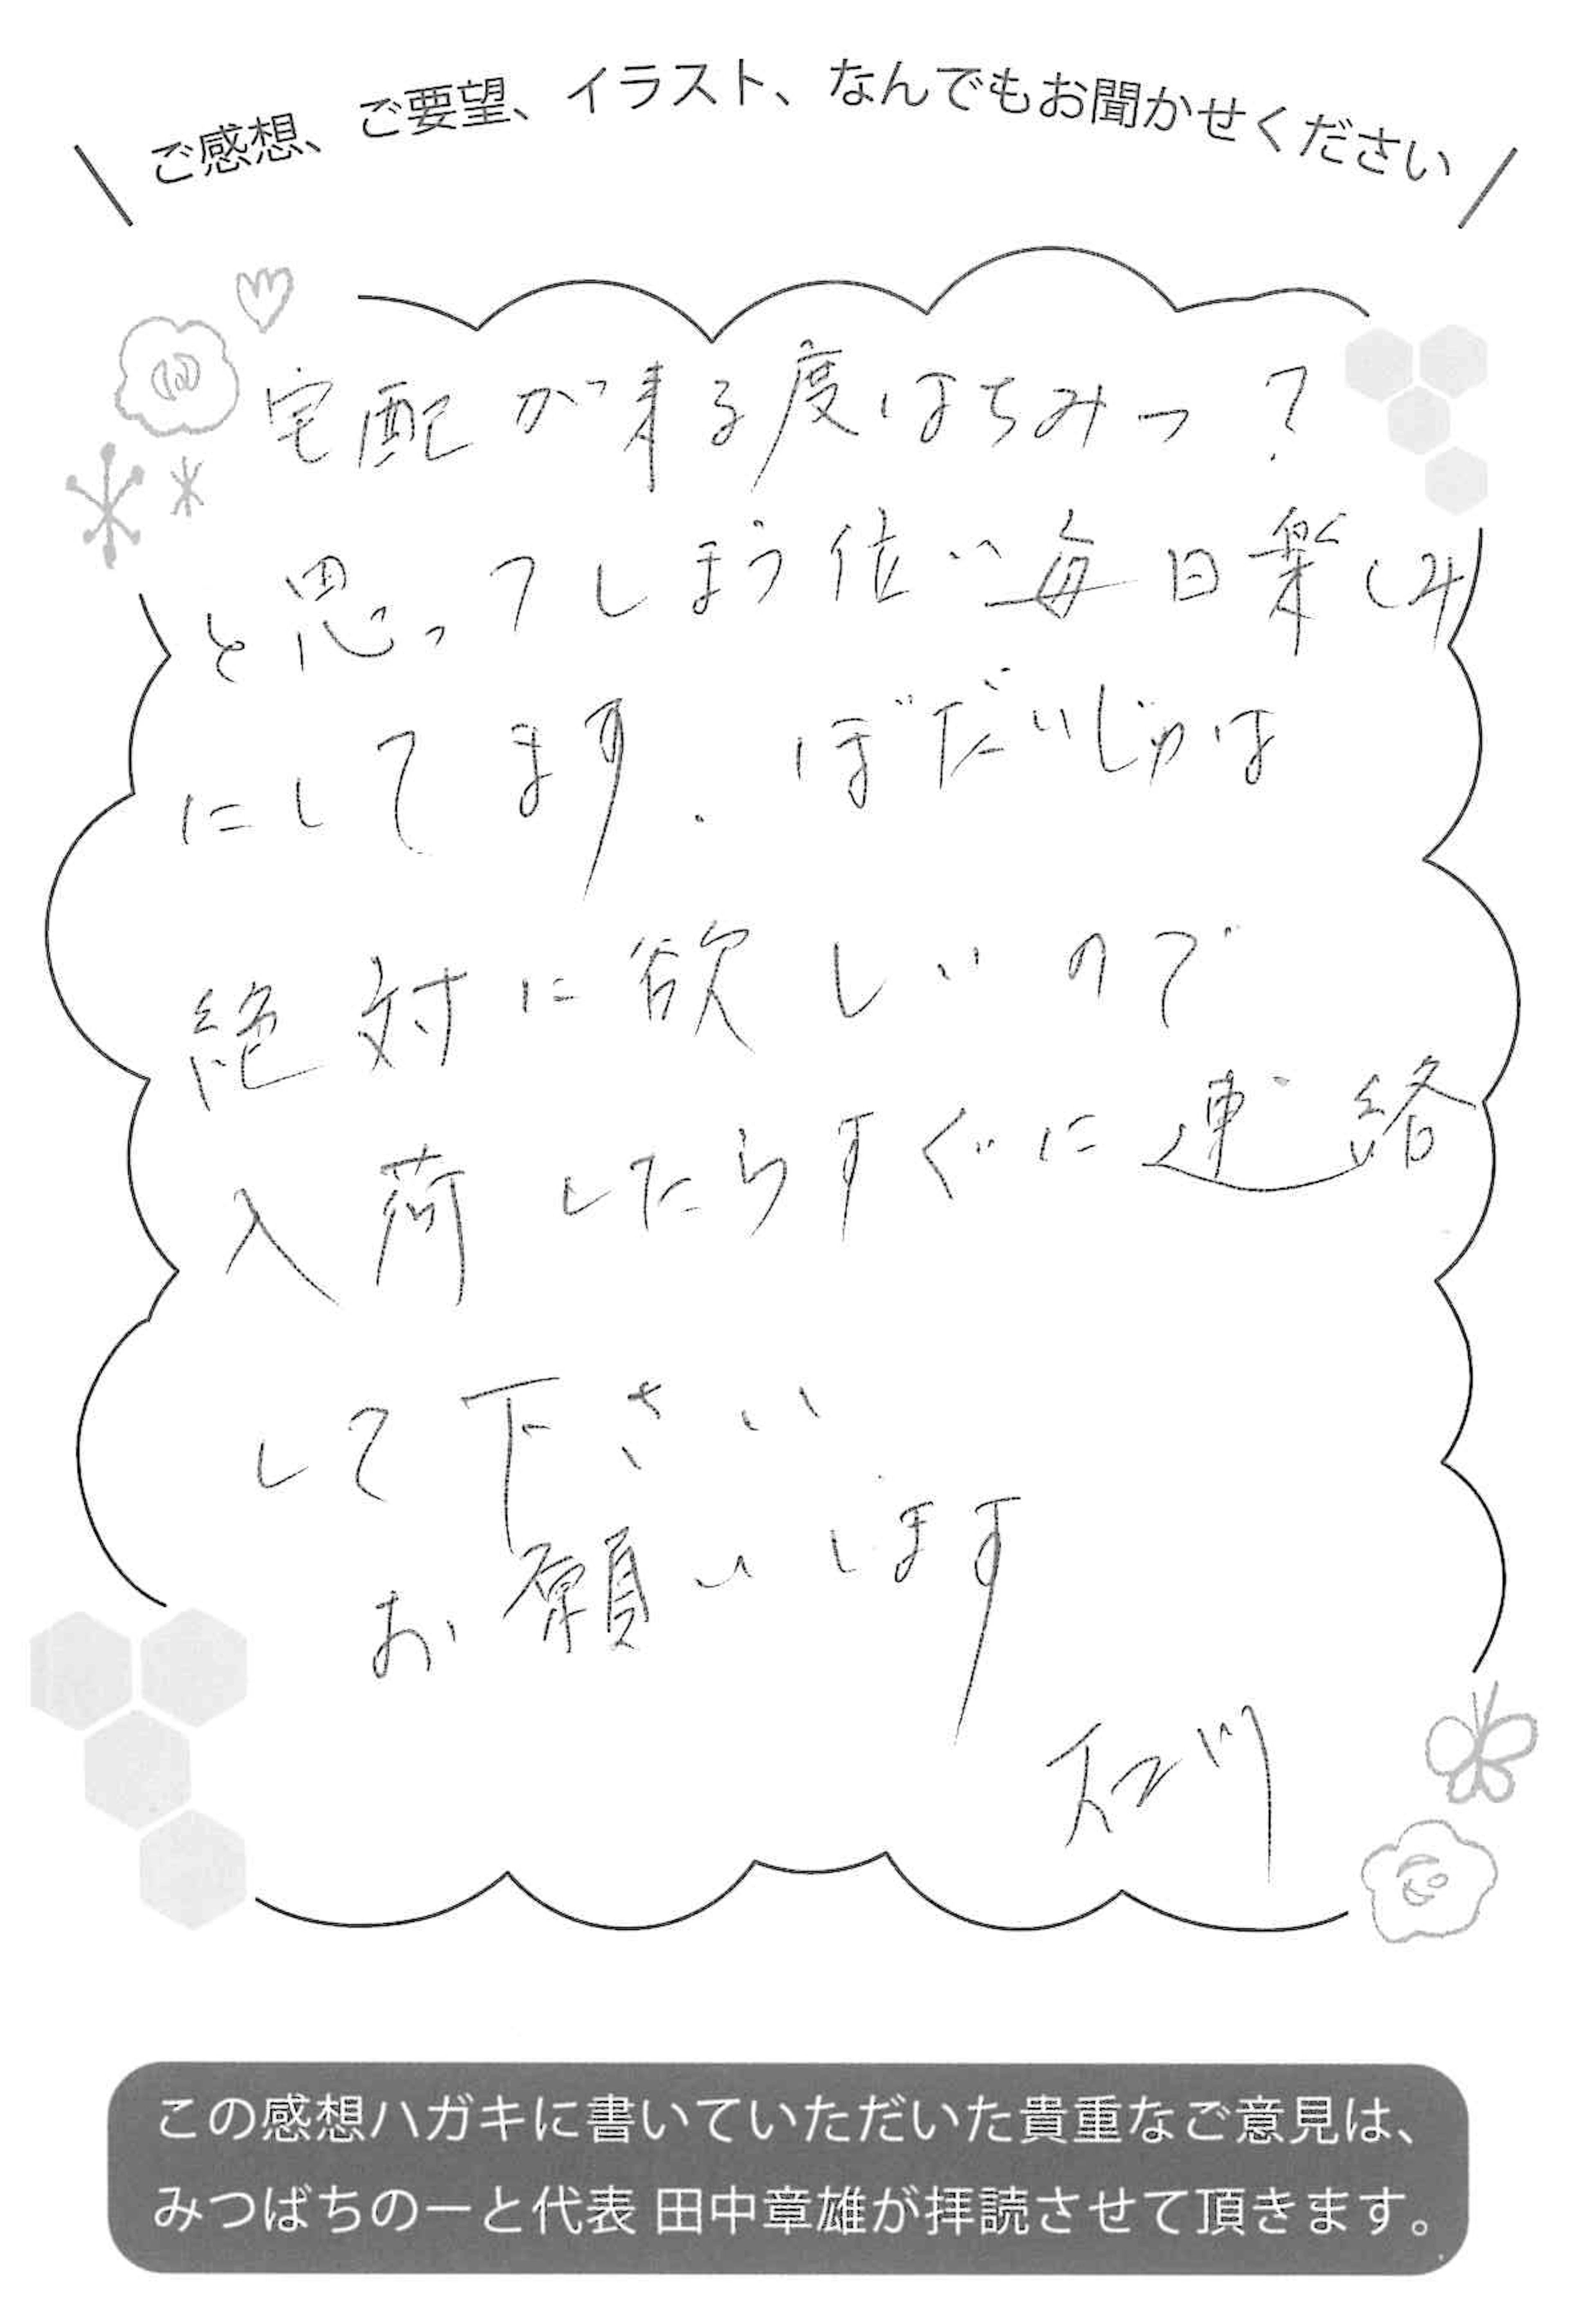 ご感想、ご要望、イラスト、なんでもお聞かせください
宅配が来る度はちみつ?
と思ってしまう位い毎日楽しみ
にしてます.ぼだいじゅは
絶対に欲しいので
入荷したらすぐに連絡
して下さい
お願いします
この感想ハガキに書いていただいた貴重なご意見は、
みつばちのーと代表 田中章雄が拝読させて頂きます。